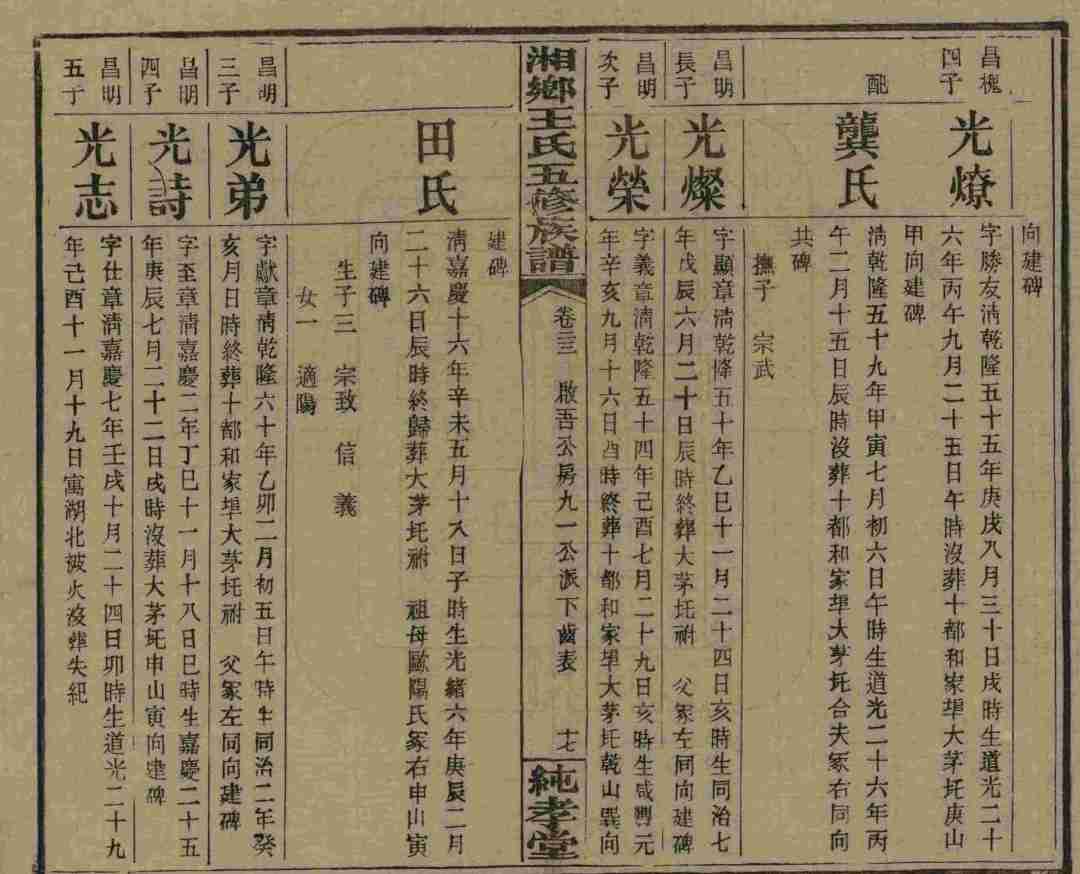 向建碑
昌槐
四子
光燎
字勝友清乾隆五十五年庚戌八月三十日戌時生道光二十
六年丙午九月二十五日午時沒葬十都和家埧大茅圫庚山
甲向建碑
配
龔氏
清乾隆五十九年甲寅七月初六日午時生道光二十六年丙
午二月十五日辰時沒葬十都和家埧大茅圫合夫冢右同向
共碑
撫子 宗武
昌明
長子
光燦
字顯章清乾隆五十年乙巳十一月二十四日亥時生同治七
年戊辰六月二十日辰時終葬大茅圫祔 父冢左同向建碑
昌明
次子
光榮
字義章清乾隆五十四年己酉七月二十九日亥時生咸豐元
年辛亥九月十六日酉時終葬十都和家埧大茅圫乾山巽向
湘鄉王氏五修族譜
卷三 啟吾公房九一公派下齒表 十七
純孝堂
建碑
田氏
清嘉慶十六年辛未五月十八日子時生光緒六年庚辰二月
二十六日辰時終歸葬大茅圫祔 祖母歐陽氏冢右申山寅
向建碑
生子三 宗致 信 義
女一 適陽
昌明
三子
光弟
字獻章清乾隆六十年乙卯二月初五日午時生同治二年癸
亥月日時終葬十都和家埧大茅圫祔 父冢左同向建碑
昌明
四子
光詩
字至章清嘉慶二年丁巳十一月十八日巳時生嘉慶二十五
年庚辰七月二十二日戌時沒葬大茅圫申山寅向建碑
昌明
五子
光志
字仕章清嘉慶七年壬戌十月二十四日卯時生道光二十九
年己酉十一月十九日寓湖北被火沒葬失紀